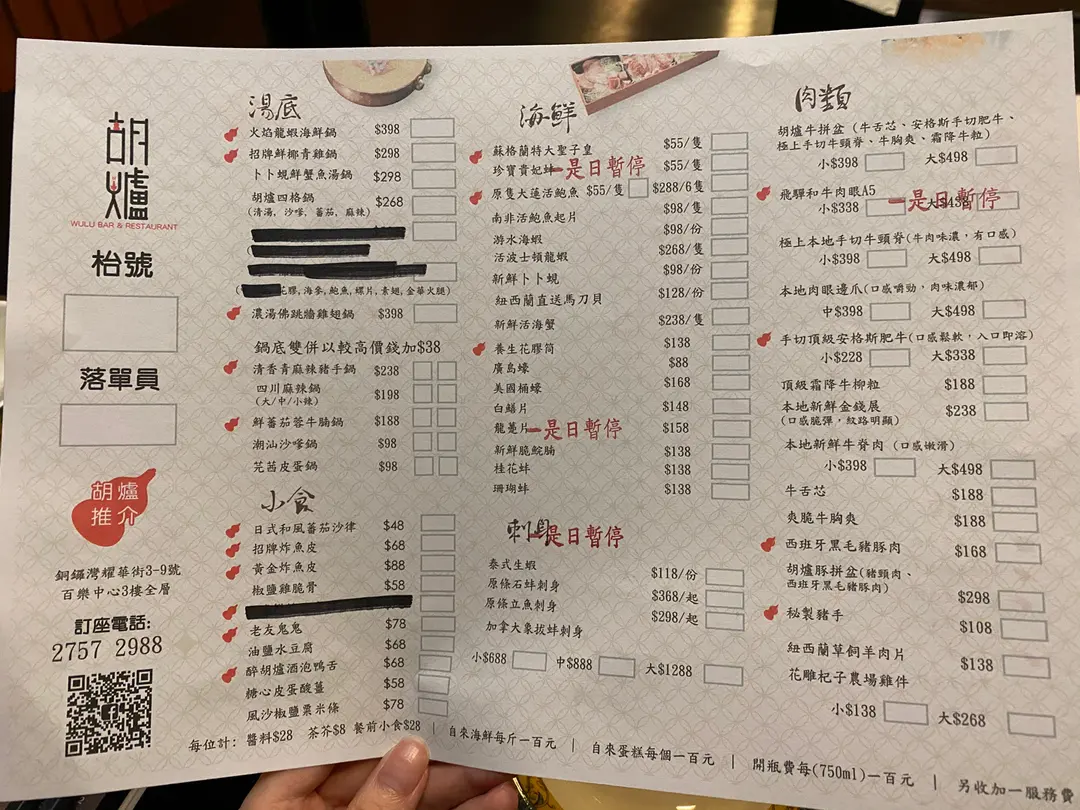 胡爐
WULU BAR & RESTAURANT
枱號
落單員
胡爐
推介
銅鑼灣耀華街3-9號
百樂中心3樓全層
訂座電話:
2757 2988
湯底
火焰龍蝦海鮮鍋 $398
招牌鮮椰青雞鍋 $298
卜卜蜆鮮蟹魚湯鍋 $298
胡爐四格鍋 $268
(清湯, 沙嗲, 蕃茄, 麻辣)
花膠,海參,鮑魚,螺片,素翅,金華火腿)
濃湯佛跳牆雞翅鍋 $398
鍋底雙併以較高價錢加$38
清香青麻辣豬手鍋 $238
四川麻辣鍋 $198
(大/中/小辣)
鮮蕃茄蓉牛腩鍋 $188
潮汕沙嗲鍋 $98
芫茜皮蛋鍋 $98
小食
日式和風蕃茄沙律 $48
招牌炸魚皮 $68
黃金炸魚皮 $88
椒鹽雞脆骨 $58
老友鬼鬼 $78
油鹽水豆腐 $68
醉胡爐酒泡鴨舌 $68
糖心皮蛋酸薑 $58
風沙椒鹽粟米條 $78
海鮮
蘇格蘭特大聖子皇 $55/隻
珍寶貴妃蚌 $55/隻
一是日暫停
原隻大蓮活鮑魚 $55/隻 $288/6隻
南非活鮑魚起片 $98/隻
游水海蝦 $98/份
活波士頓龍蝦 $268/隻
新鮮卜卜蜆 $98/份
紐西蘭直送馬刀貝 $128/份
新鮮活海蟹 $238/隻
養生花膠筒 $138
廣島蠔 $88
美國桶蠔 $168
白鱔片 $148
龍躉片 $158
一是日暫停
新鮮脆鯇腩 $138
桂花蚌 $138
珊瑚蚌 $138
刺身
一是日暫停
泰式生蝦 $118/份
原條石蚌刺身 $368/起
原條立魚刺身 $298/起
加拿大象拔蚌刺身
小$688 中$888 大$1288
肉類
胡爐牛拼盆 (牛舌芯、安格斯手切肥牛、
極上手切牛頸脊、牛胸爽、霜降牛粒)
小$398 大$498
飛驒和牛肉眼A5
小$338 大$438
一是日暫停
極上本地手切牛頸脊(牛肉味濃,有口感)
小$398 大$498
本地肉眼邊爪(口感嚼勁,肉味濃郁)
中$398 大$498
手切頂級安格斯肥牛(口感鬆軟,入口即溶)
小$228 大$338
頂級霜降牛柳粒 $188
本地新鮮金錢展 $238
(口感脆彈,紋路明顯)
本地新鮮牛脊肉 (口感嫩滑)
小$398 大$498
牛舌芯 $188
爽脆牛胸爽 $188
西班牙黑毛豬豚肉 $168
胡爐豚拼盆(豬頸肉、
西班牙黑毛豬豚肉) $298
秘製豬手 $108
紐西蘭草飼羊肉片 $138
花雕杞子農場雞件
小$138 大$268
每位計: 醬料$28 茶芥$8 餐前小食$28 | 自來海鮮每斤一百元 | 自來蛋糕每個一百元 | 開瓶費每(750ml)一百元 | 另收加一服務費